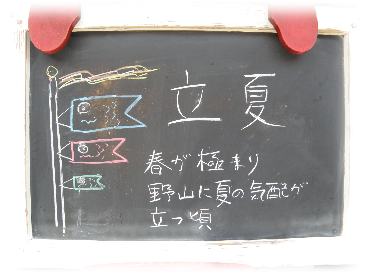 立夏
春が極まり
野山に夏の気配が
立つ頃